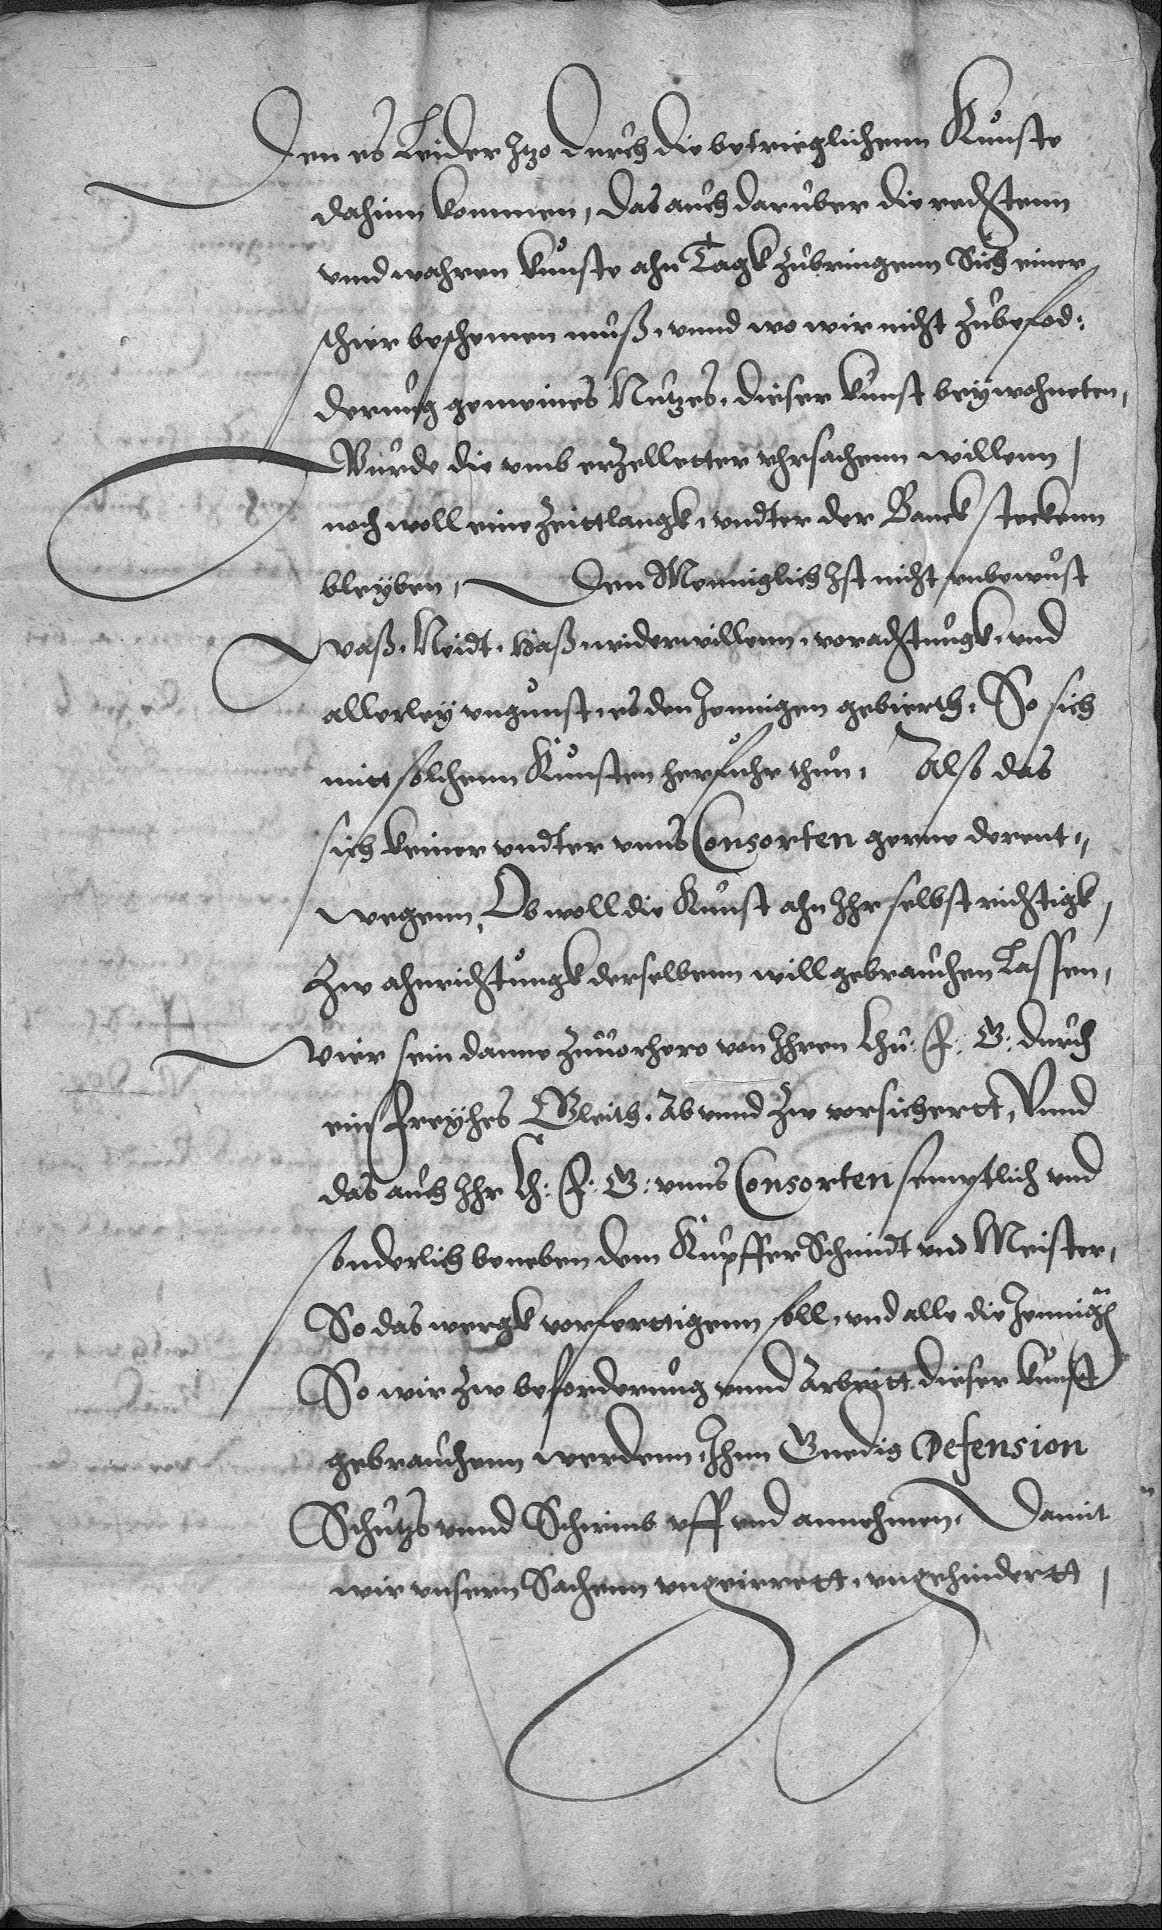 Den es Leider Itzo durch die betrieglichenn Kunste
dahinn kommen, das auch daruber die rechtenn
vnnd wahren kunste ahn Tagk zubringenn Sich einer
schier beschemen muß, vnnd wo wir nicht zubefod:
derung gemeines Nutzes, dieser kunst beywohneten,
Wurde die vmb erzelletter vhrsachenn willenn
noch woll eine Zeittlangk, vndter der Banck steckenn
bleyben, Den Menniglich Ist nicht vnbewust
waß, Neidt, Haß, widerwillenn, vorachtungk, vnd
allerley vngunst, es den Jennigen gebierth, So sich
mitt solchenn Kunsten herfuhr thun, Alß das
sich keiner vndter vnns Consorten gerne derent-,
wegenn, Ob woll die Kunst ahn Ihr selbst richtigk,
Zw ahnrichtungk derselbenn will gebrauchen Lassen,
Wier sein danne Zuuorhero von Ihren Chu: F: G: durch
ein Freyhes Gleith, Ab vnnd Zw vorsichertt, Vnnd
das auch Ihr Ch: F: G: vnns Consorten semptlich vnd
sonderlich beneben dem Kupffer Schmidt vnd Meister,
So das wergk vorferttigenn soll, vnd alle die Jennigen
So wir Zw beforderung vnnd Arbeitt dieser kunst
gebrauchenn werdenn, Ihnn Gnedig Defension
Schutz vnnd Schirmb vff vnd annehmen, Damit
wir vnsern Sachenn vngeirrett, vngehindertt,